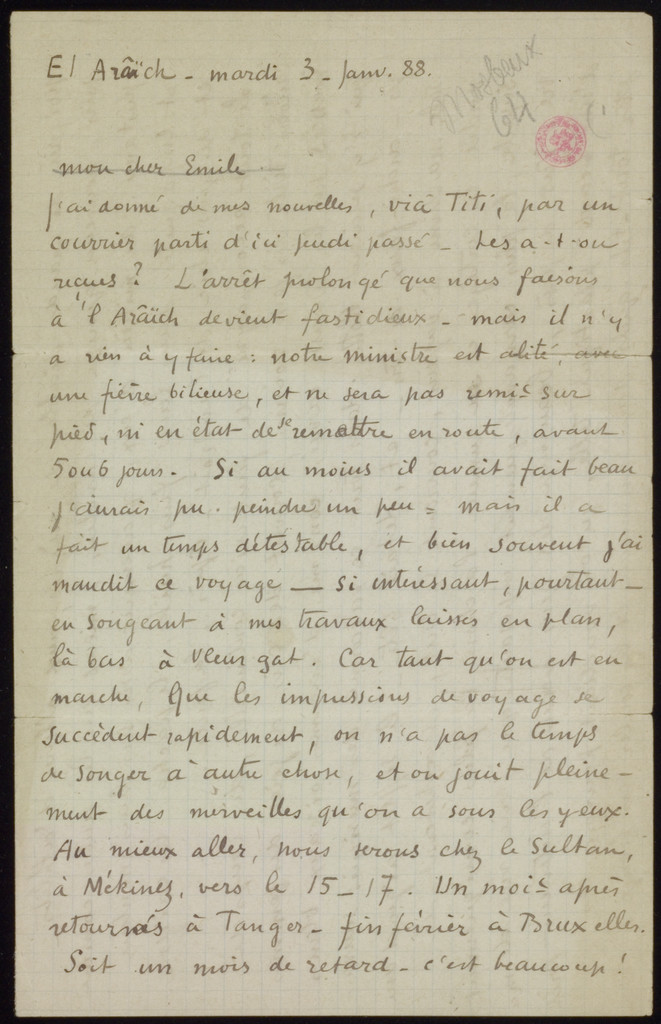 El Arâïch - mardi 3 - Janv. 88.
64
mon cher Emile
J'ai donné de mes nouvelles, viâ Titi, par un
courrier parti d'ici jeudi passé - Les a-t-on
reçues ? L'arrêt prolongé que nous faisons
à l'Arâïch devient fastidieux - mais il n'y
a rien à y faire : notre ministre est alité, avec
une fièvre bilieuse, et ne sera pas remis sur
pied, ni en état de se remettre en route, avant
5 ou 6 jours. Si au moins il avait fait beau
j'aurais pu peindre un peu = mais il a
fait un temps détestable, et bien souvent j'ai
maudit ce voyage — si intéressant, pourtant -
en songeant à mes travaux laissés en plan,
là bas à Vleurgat. Car tant qu'on est en
marche, Que les impressions de voyage se
succèdent rapidement, on n'a pas le temps
de songer à autre chose, et on jouit pleine-
ment des merveilles qu'on a sous les yeux.
Au mieux aller, nous serons chez le Sultan,
à Mékinez, vers le 15-17. Un mois après
retournés à Tanger - fin février à Bruxelles.
Soit un mois de retard - c'est beaucoup !